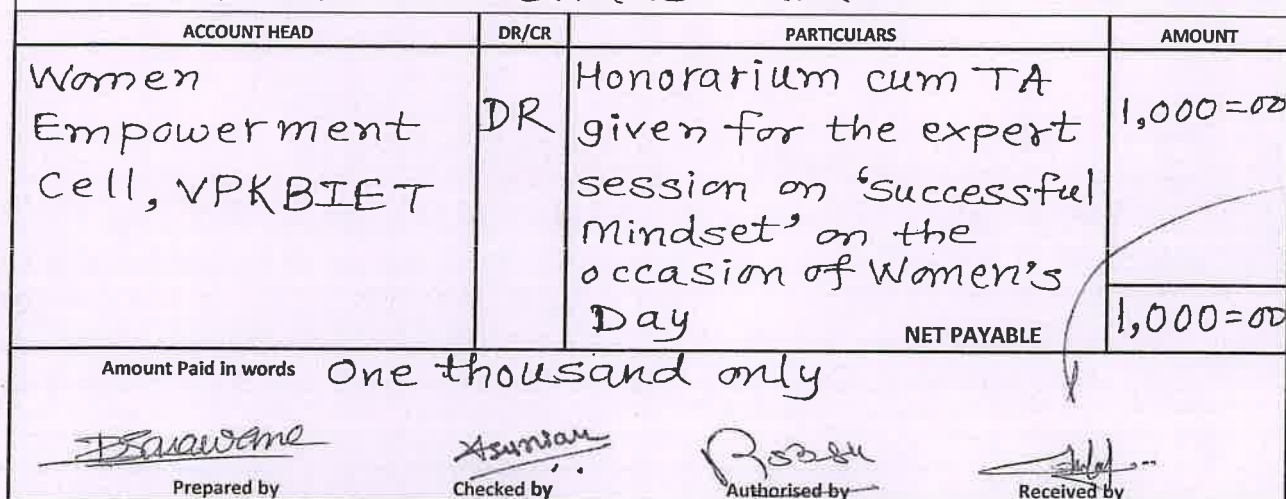 ACCOUNT HEAD DR/CR PARTICULARS AMOUNT
Women
Empowerment
Cell, VPKBIET
DR
Honorarium cum TA
given for the expert
session on 'Successful
Mindset' on the
occasion of Women's
Day
1,000=00
NET PAYABLE 1,000=00
Amount Paid in words One thousand only
Prepared by Checked by Authorised by Received by